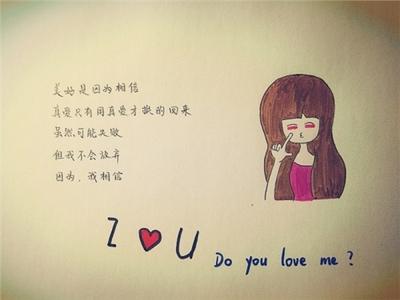 美好是因为相信
真爱只有用真爱才换的回来
虽然可能失败
但我不会放弃
因为，我相信
I ❤ U
Do you love me ?